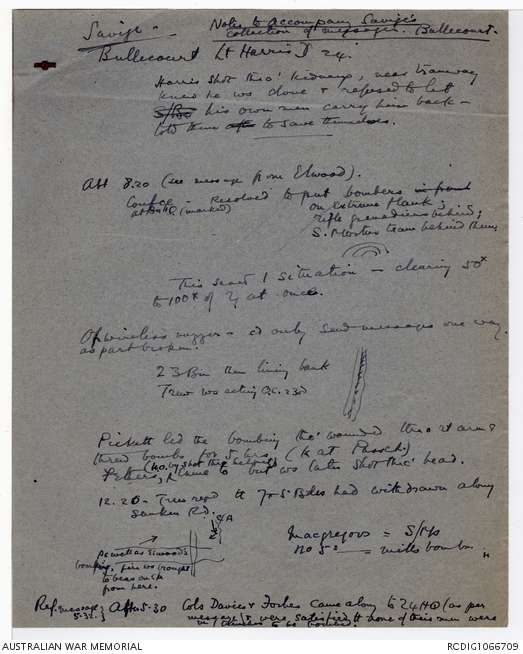 Savige.
Notes to accompany Savige's
collection of messages. Bullecourt.
Bullecourt Lt Harris D 24.
Harris shot thro' kidneys, near tramway
knew he was done & refused to let
S/Br his own men carry him back -
told them to save themselves.
Att 8.20 (see message from Elwood).
Confce - Resolved to put bombers in front
at Bn HQ (marked)
on extreme flank;
rifle grenadiers behind;
S. Mortar team behind them
This saved situation - clearing 50x
to 100x of at once.
Of wireless only send messages one way
as part broken.
23 Bn then lining bank
Trew was acting O.C. 23rd
Pickett led the bombing tho' wounded thro' rt arm &
threw bombs for 5 hrs, (K at Pozch.)
Fethers, (H.Q. by shot thro' helmet) came to but was later shot thro' head.
12.20 - Trew repd tt 7 & 5 Bdes had withdrawn along
Sunken Rd.
As well as Elwood's
bombing, fire was brought
to bear on
from here.
Macgregors = S/Ms
No 5s = Mills bombs
Ref. message 5.32. After 5-30 Cols Davies & Forbes came along to 24 HQ (as per
message) & were satisfied tt none of their men were